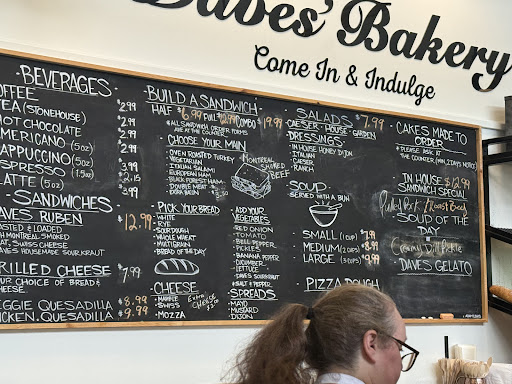 Daves' Bakery
Come In & Indulge
BEVERAGES
COFFEE $2.99
TEA (STONEHOUSE) $2.99
HOT CHOCOLATE $2.99
AMERICANO (5oz)
CAPPUCCINO (5oz)
ESPRESSO (1.5oz)
LATTE (5oz)
SANDWICHES
DAVES RUBEN $12.99
TOASTED & LOADED
WITH MONTREAL SMOKED
MEAT, SWISS CHEESE
DAVES HOUSEMADE SOURKRAUT
GRILLED CHEESE $7.99
YOUR CHOICE OF BREAD &
CHEESE
VEGGIE QUESADILLA $8.99
CHICKEN QUESADILLA $9.99
BUILD A SANDWICH
HALF $6.99 FULL $12.99 COMBO $19.99
*ALL SANDWICH ORDER FORMS
ARE AT THE COUNTER
CHOOSE YOUR MAIN
OVEN ROASTED TURKEY
VEGETARIAN
ITALIAN SALAMI
EUROPEAN HAM
BLACK FOREST HAM
DOUBLE MEAT
EXTRA BACON
MONTREAL
SMOKED
BEEF
PICK YOUR BREAD
WHITE
RYE
SOURDOUGH
WHOLE WHEAT
MULTIGRAIN
BREAD OF THE DAY
CHEESE
MARBLE
SWISS
MOZZA
EXTRA
CHEESE
ADD YOUR
VEGETABLES
RED ONION
TOMATO
BELL PEPPER
PICKLE
BANANA PEPPER
CUCUMBER
LETTUCE
DAVES SOURKROUT
SALT & PEPPER
SPREADS
MAYO
MUSTARD
DIJON
SALADS $7.99
CAESER - HOUSE - GARDEN
DRESSINGS
IN HOUSE HONEY DIJON
ITALIAN
CAESER
RANCH
SOUP
SERVED WITH A BUN
SMALL (1 CUP) 7.99
MEDIUM (2 CUPS) $8.99
LARGE (3 CUPS) $9.99
PIZZA DOUGH
CAKES MADE TO
ORDER
* PLEASE ASK AT
THE COUNTER (MIN. 2 DAYS NOTICE)
IN HOUSE $12.99
SANDWICH SPECIAL
Pulled Pork Roast Beef
SOUP OF THE
DAY
Creamy Dill Pickle
DAVES GELATO